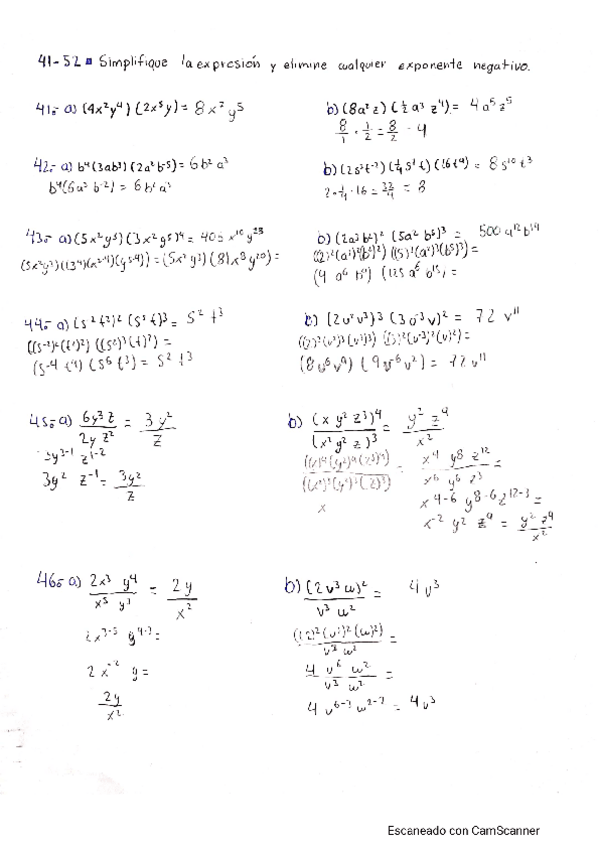 41-52 Simplifique la expresión y elimine cualquier exponente negativo.
41.- a) (4x²y⁴) (2x⁵y) = 8x⁷y⁵
b) (8a²z) (½a³ z⁴) = 4a⁵z⁵
8/1 · 1/2 = 8/2 - 4
42.- a) b⁴(3ab³) (2a² b⁻⁵) = 6b²a³
b⁴(6a³ b⁻²) = 6b²a³
b) (2s³t⁻¹) (¼s⁷t) (16t⁴) = 8s¹⁰t³
2 · ¼ · 16 = 32/4 = 8
43.- a) (5x²y³) (3x²y⁵)⁴ = 405x¹⁰y²³
b) (2a³b²)² (5a²b⁵)³ = 500a¹²b¹⁹
(4 a⁶ b⁴) (125 a⁶ b¹⁵) =
44.- a) (s⁻²t²)² (s²t)³ = s² t³
(s⁻⁴ t⁴) (s⁶ t³) = s² t³
b) (2u²v³)³ (3u⁻³v)² = 72 v¹¹
(8u⁶v⁹) (9u⁻⁶v²) = 72v¹¹
45.- a) 6y³z / 2yz² = 3y² / z
3y³⁻¹ z¹⁻²
3y² z⁻¹ = 3y²/z
b) (x y² z³)⁴ / (x²y²z)³ = y² z⁹ / x²
= x⁴ y⁸ z¹² / x⁶ y⁶ z³ =
x⁴⁻⁶ y⁸⁻⁶ z¹²⁻³ =
x⁻² y² z⁹ = y² z⁹ / x²
46.- a) 2x³ y⁴ / x⁵ y³ = 2y / x²
2x³⁻⁵ y⁴⁻³ =
2x⁻² y =
2y / x²
b) (2v³w)² / v³w² = 4v³
4 v⁶ w² / v³ w² =
4v⁶⁻³w²⁻² = 4v³
Escaneado con CamScanner